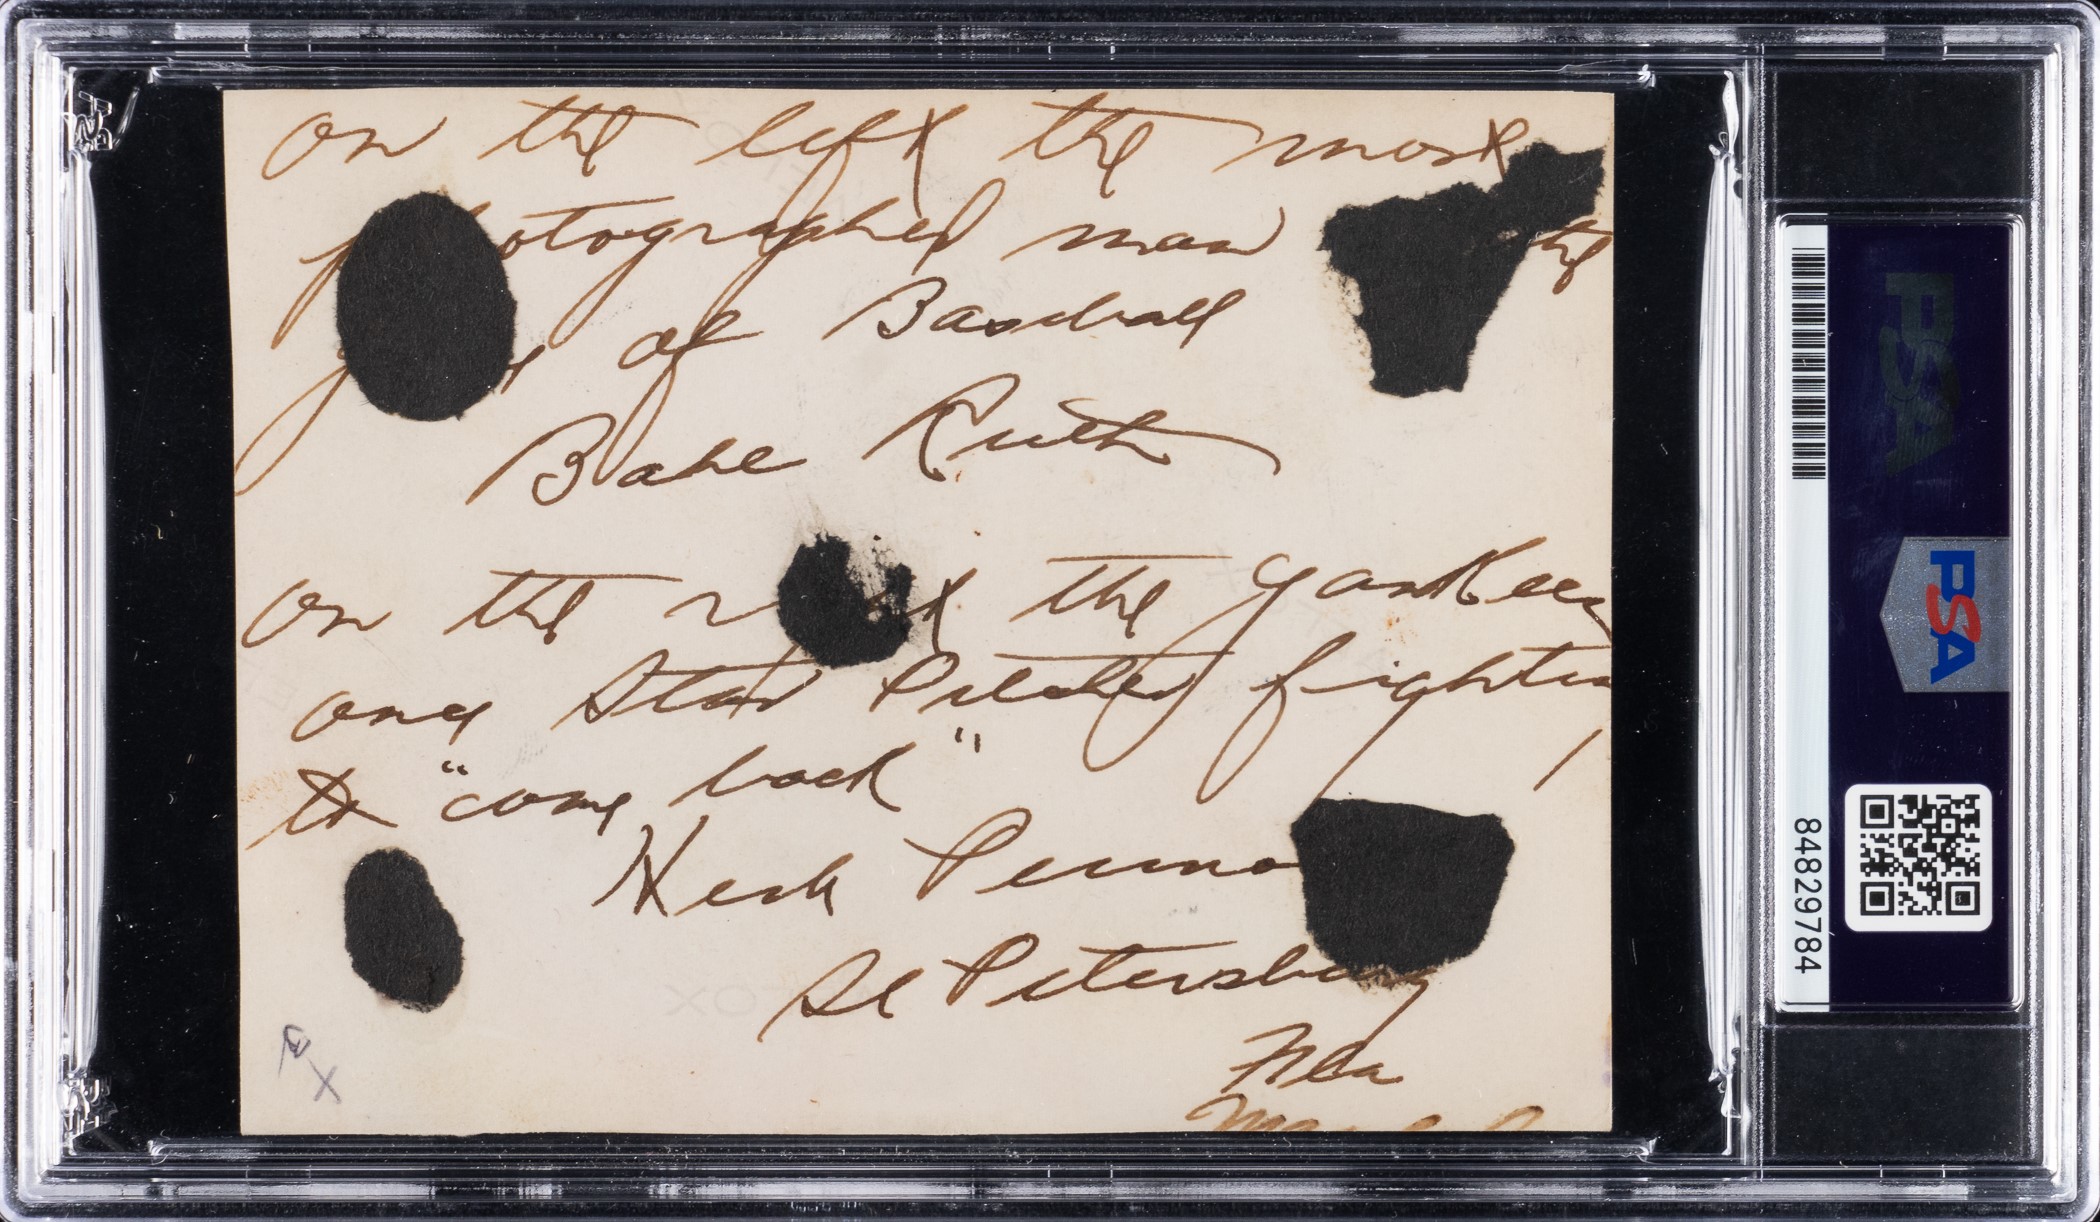 on the left the most
photographed man the
of Baseball
Babe Ruth
on the the Yankees
one Star Pitcher fightin
to "come back"
Herb Penno
St Petersburg
Fla
PSA
PSA
84829784